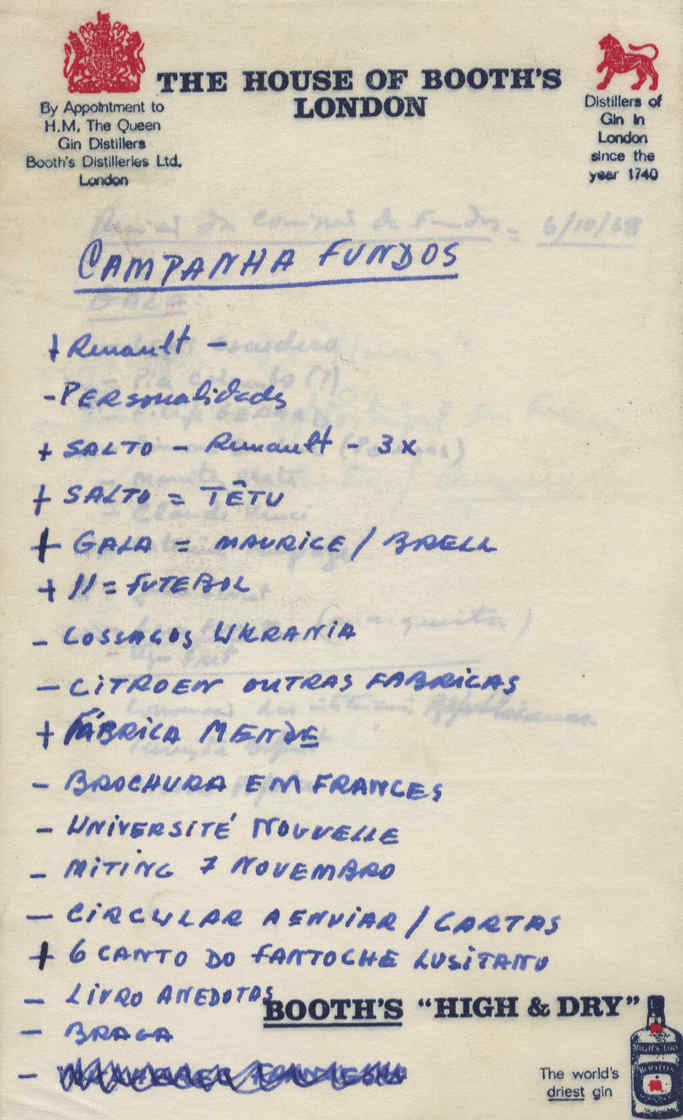 THE HOUSE OF BOOTH'S
LONDON
By Appointment to
H.M. The Queen
Gin Distillers
Booth's Distilleries Ltd.
London
Distillers of
Gin in
London
since the
year 1740
6/10/68
CAMPANHA FUNDOS
+ Renault -
- PERsonalidades
+ SALTO - Renault - 3 x
+ SALTO = TÊTU
+ GALA = MAURICE / BRELL
+ 11 = FUTEBOL
- COSSACOS UKRANIA
- CITROEN OUTRAS FABRICAS
+ FÁBRICA MENDE
- BROCHURA EM FRANCES
- UNIVERSITÉ NOUVELLE
- MITING 7 NOVEMBRO
- CIRCULAR A ENVIAR / CARTAS
+ 6 CANTO DO FANTOCHE LUSITANO
- LIVRO ANEDOTAS
- BRAGA
BOOTH'S "HIGH & DRY"
The world's
driest gin